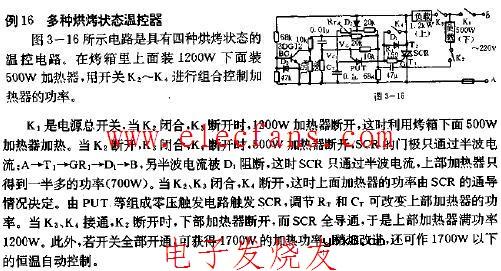 例16 多种烘烤状态温控器
图3-16所示电路是具有四种烘烤状态的
温控电路。在烤箱里上面装1200W下面装
500W加热器,用开关K₂~K₄进行组合控制加
热器的功率。
图3-16
K₁是电源总开关,当K₂闭合,K₃断开时,1200W加热器断开,这时利用烤箱下面500W
加热器加热。当K₂断开,K₃闭合,K₄断开时,500W加热器断开,SCR的门极只通过半波电
流:A→T₁→GR₁→D₁→B,另半波电流被D₁阻断,这时SCR只通过半波电流,上部加热器只
得到一半多的功率(700W)。当K₂、K₃闭合,K₄断开,这时上面加热器的功率由SCR的导通
情况决定。由PUT等组成零压触发电路触发SCR,调节R_T和C_T可改变上部加热器的功
率。当K₃、K₄接通,K₂断开时,下部加热器断开,而SCR全导通,于是上部加热器满功率
1200W。此外,若开关全部开通,可获得1700W的加热功率,
还可作1700W以下
的恒温自动控制。
www.elecfans.com
电子发烧友
68k
0.01μ
20k
3DG12
PUT
20k
SCR
47k
0.2μ
68k
15k
47μ
1.2k
(上)
500W
(下)
~220V
A